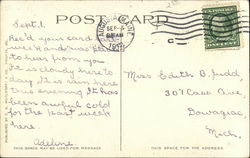 POST CARD
SEP 5
Sept. 1.
Rec'd your card
week and was glad
to hear from you
It is cloudy here to
day it is rain
the evening It has
been awful cold
for the past week
here.
Adeline
Miss Edith B. Judd
307 Cass Ave
Dowagiac
Mich.
THIS SPACE MAY BE USED FOR MESSAGE
THIS SPACE FOR THE ADDRESS